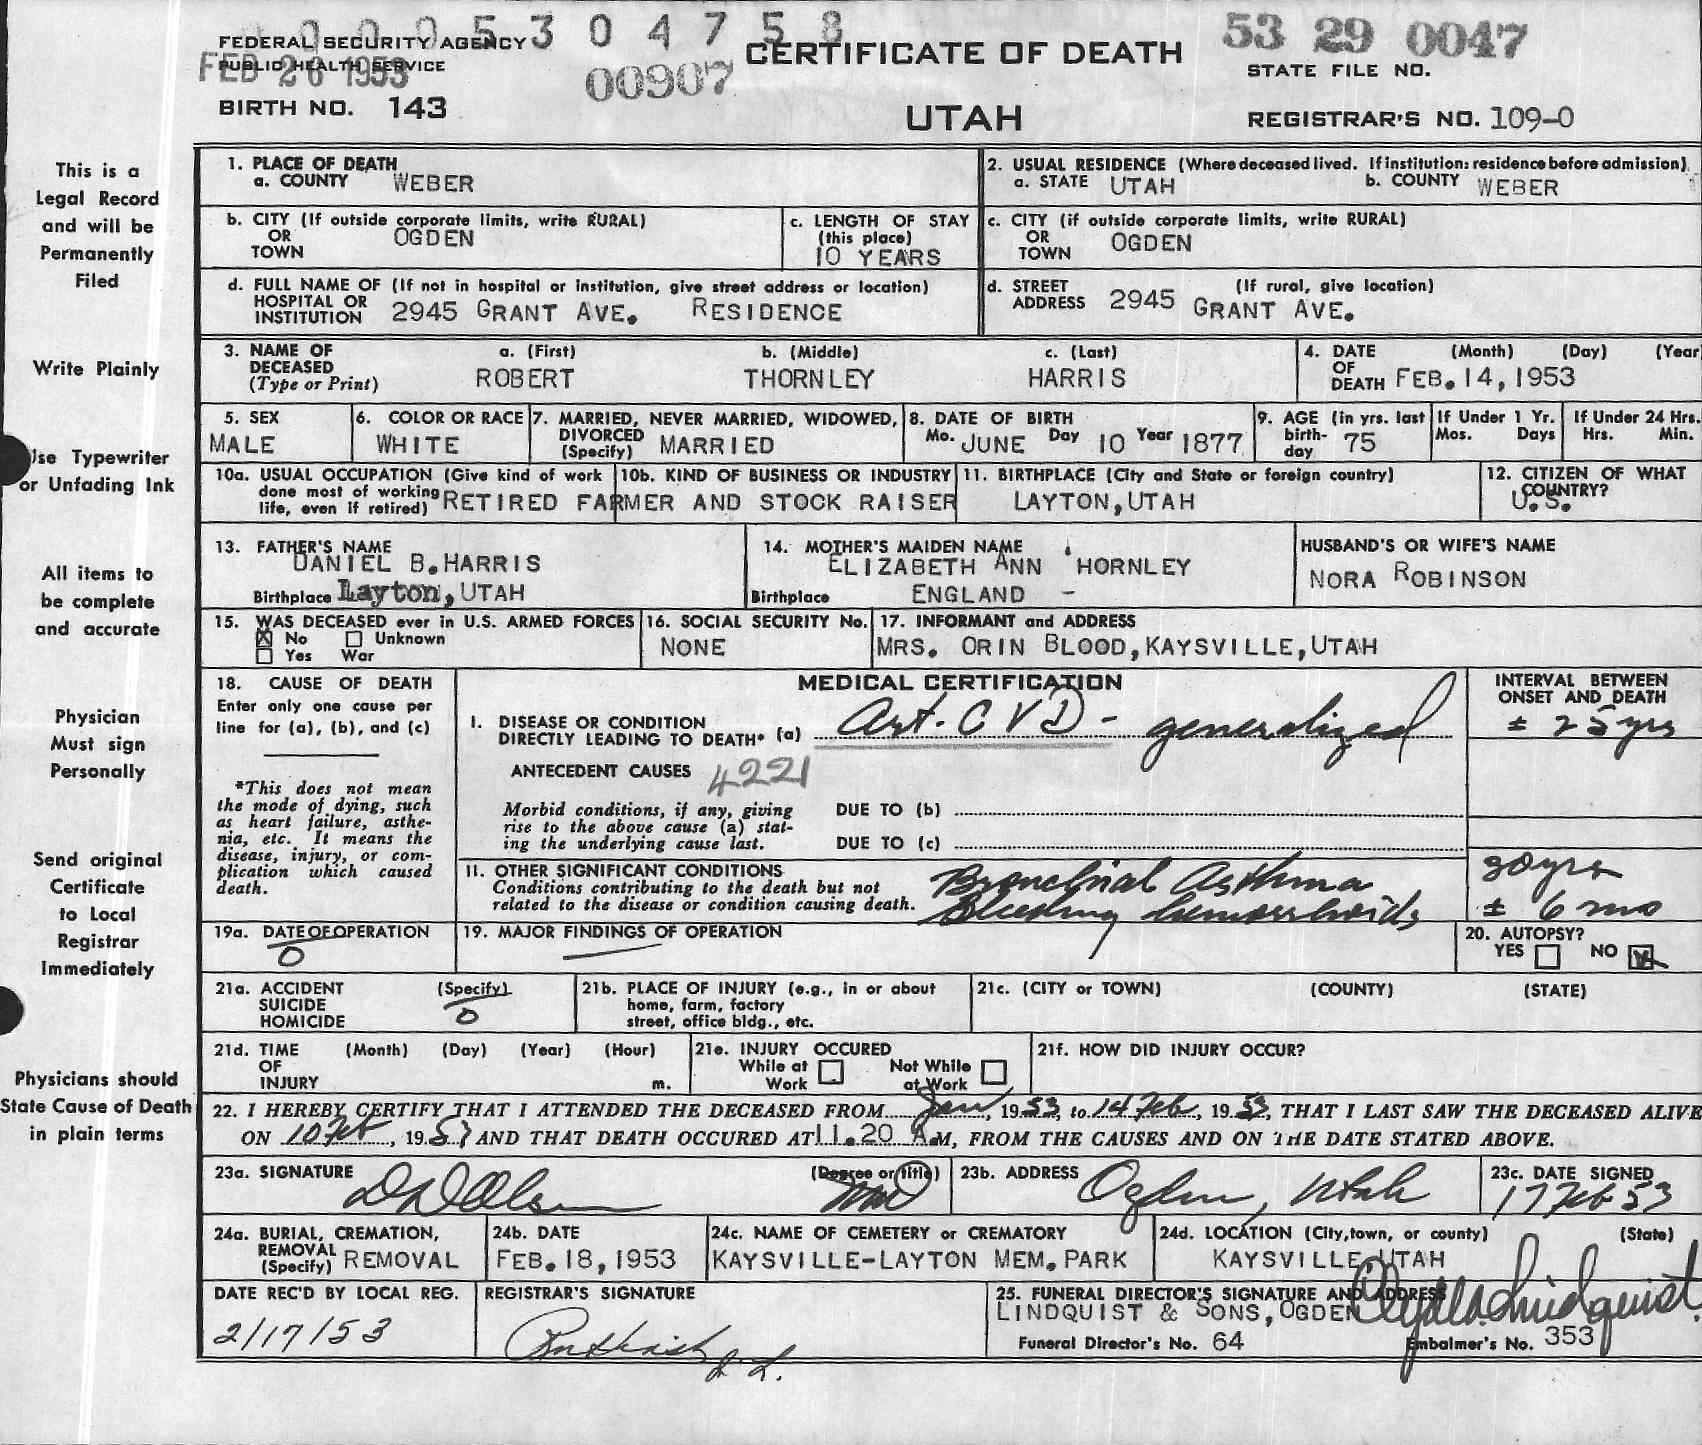 0 0 0 5 3 0 4 7 5 8
FEDERAL SECURITY AGENCY
PUBLIC HEALTH SERVICE
FEB 26 1953
BIRTH NO. 143
00907
CERTIFICATE OF DEATH
UTAH
53 29 0047
STATE FILE NO.
REGISTRAR'S NO. 109-0
This is a
Legal Record
and will be
Permanently
Filed
Write Plainly
Use Typewriter
or Unfading Ink
All items to
be complete
and accurate
Physician
Must sign
Personally
Send original
Certificate
to Local
Registrar
Immediately
Physicians should
State Cause of Death
in plain terms
1. PLACE OF DEATH
a. COUNTY WEBER
2. USUAL RESIDENCE (Where deceased lived. If institution: residence before admission)
a. STATE UTAH b. COUNTY WEBER
b. CITY (If outside corporate limits, write RURAL)
OR
TOWN OGDEN
c. LENGTH OF STAY
(this place)
10 YEARS
c. CITY (if outside corporate limits, write RURAL)
OR
TOWN OGDEN
d. FULL NAME OF (If not in hospital or institution, give street address or location)
HOSPITAL OR
INSTITUTION 2945 GRANT AVE. RESIDENCE
d. STREET (If rural, give location)
ADDRESS 2945 GRANT AVE.
3. NAME OF a. (First) b. (Middle) c. (Last)
DECEASED
(Type or Print) ROBERT THORNLEY HARRIS
4. DATE (Month) (Day) (Year
OF
DEATH FEB. 14, 1953
5. SEX
MALE
6. COLOR OR RACE
WHITE
7. MARRIED, NEVER MARRIED, WIDOWED,
DIVORCED
(Specify) MARRIED
8. DATE OF BIRTH
Mo. JUNE Day 10 Year 1877
9. AGE (in yrs. last
birth-
day 75
If Under 1 Yr.
Mos. Days
If Under 24 Hrs.
Hrs. Min.
10a. USUAL OCCUPATION (Give kind of work
done most of working
life, even if retired)
10b. KIND OF BUSINESS OR INDUSTRY
RETIRED FARMER AND STOCK RAISER
11. BIRTHPLACE (City and State or foreign country)
LAYTON, UTAH
12. CITIZEN OF WHAT
COUNTRY?
U.S.
13. FATHER'S NAME
DANIEL B. HARRIS
Birthplace Layton, UTAH
14. MOTHER'S MAIDEN NAME
ELIZABETH ANN HORNLEY
Birthplace ENGLAND -
HUSBAND'S OR WIFE'S NAME
NORA ROBINSON
15. WAS DECEASED ever in U.S. ARMED FORCES
No Unknown
Yes War
16. SOCIAL SECURITY No.
NONE
17. INFORMANT and ADDRESS
MRS. ORIN BLOOD, KAYSVILLE, UTAH
18. CAUSE OF DEATH
Enter only one cause per
line for (a), (b), and (c)
*This does not mean
the mode of dying, such
as heart failure, asthe-
nia, etc. It means the
disease, injury, or com-
plication which caused
death.
MEDICAL CERTIFICATION
I. DISEASE OR CONDITION
DIRECTLY LEADING TO DEATH* (a) Art. CVD - generalized
ANTECEDENT CAUSES 4221
Morbid conditions, if any, giving
rise to the above cause (a) stat-
ing the underlying cause last.
DUE TO (b)
DUE TO (c)
11. OTHER SIGNIFICANT CONDITIONS
Conditions contributing to the death but not
related to the disease or condition causing death.
Bronchial Asthma
Bleeding hemorrhoids
INTERVAL BETWEEN
ONSET AND DEATH
± 25 yrs
30 yrs
± 6 mo
19a. DATE OF OPERATION
0
19. MAJOR FINDINGS OF OPERATION
20. AUTOPSY?
YES NO
21a. ACCIDENT (Specify)
SUICIDE
HOMICIDE 0
21b. PLACE OF INJURY (e.g., in or about
home, farm, factory
street, office bldg., etc.
21c. (CITY or TOWN) (COUNTY) (STATE)
21d. TIME (Month) (Day) (Year) (Hour)
OF
INJURY m.
21e. INJURY OCCURED
While at Not While
Work at Work
21f. HOW DID INJURY OCCUR?
22. I HEREBY CERTIFY THAT I ATTENDED THE DECEASED FROM Jan, 1953, to 14 Feb, 1953, THAT I LAST SAW THE DECEASED ALIVE
ON 10 Feb, 1953 AND THAT DEATH OCCURED AT 11.20 A.M, FROM THE CAUSES AND ON THE DATE STATED ABOVE.
23a. SIGNATURE (Degree or title)
MD
23b. ADDRESS
Ogden, Utah
23c. DATE SIGNED
17 Feb 53
24a. BURIAL, CREMATION,
REMOVAL
(Specify) REMOVAL
24b. DATE
FEB. 18, 1953
24c. NAME OF CEMETERY or CREMATORY
KAYSVILLE-LAYTON MEM. PARK
24d. LOCATION (City, town, or county) (State)
KAYSVILLE, UTAH
DATE REC'D BY LOCAL REG.
2/17/53
REGISTRAR'S SIGNATURE
25. FUNERAL DIRECTOR'S SIGNATURE AND ADDRESS
LINDQUIST & SONS, OGDEN
Funeral Director's No. 64 Embalmer's No. 353